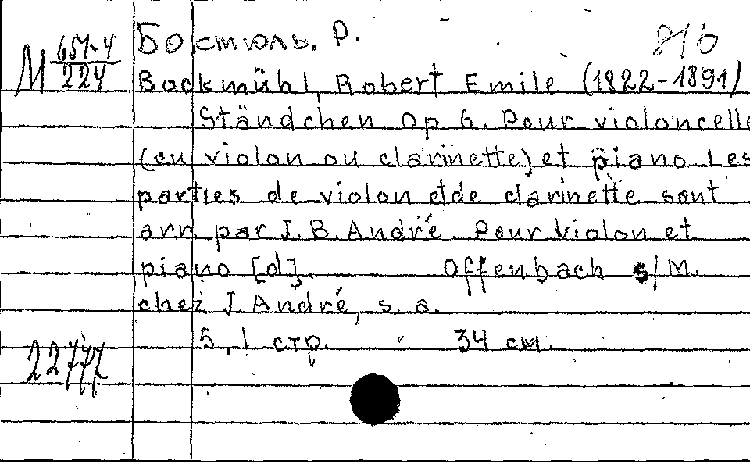 М 651-4/224
Бокмюль. Р.
816
Bockmühl, Robert Emile (1822-1891)
Ständchen Op 6. Pour violoncelle
(ou violon ou clarinette) et piano Les
parties de violon et de clarinette sont
arr par J. B. André. Pour violon et
piano [d]. Offenbach s/M.
chez J. André, s. a.
5, 1 стр. 34 см.
22777